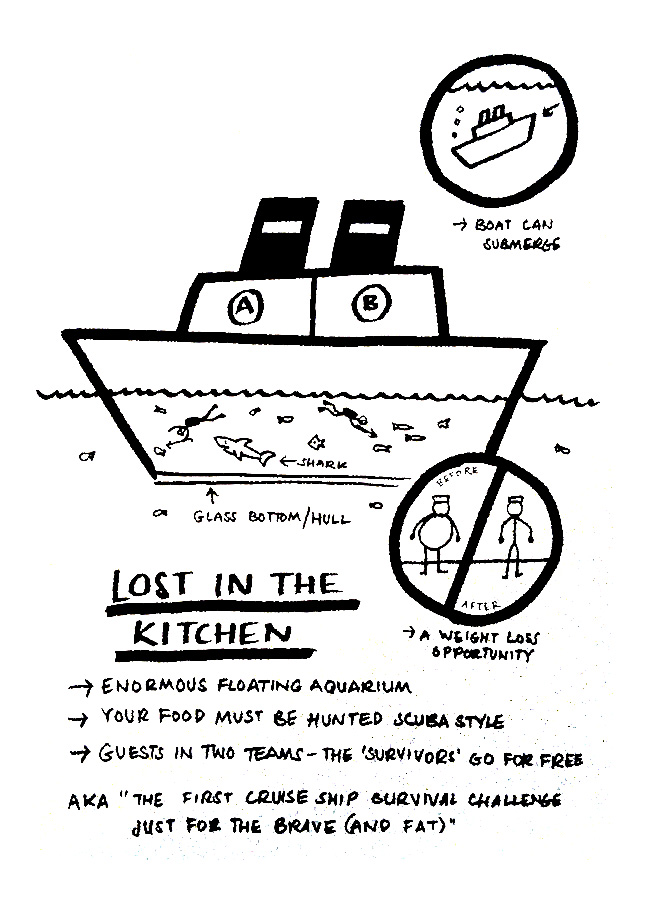 → BOAT CAN
SUBMERGE
A
B
← SHARK
GLASS BOTTOM/HULL
BEFORE
AFTER
→ A WEIGHT LOSS
OPPORTUNITY
LOST IN THE
KITCHEN
→ ENORMOUS FLOATING AQUARIUM
→ YOUR FOOD MUST BE HUNTED SCUBA STYLE
→ GUESTS IN TWO TEAMS - THE 'SURVIVORS' GO FOR FREE
AKA "THE FIRST CRUISE SHIP SURVIVAL CHALLENGE
JUST FOR THE BRAVE (AND FAT)"